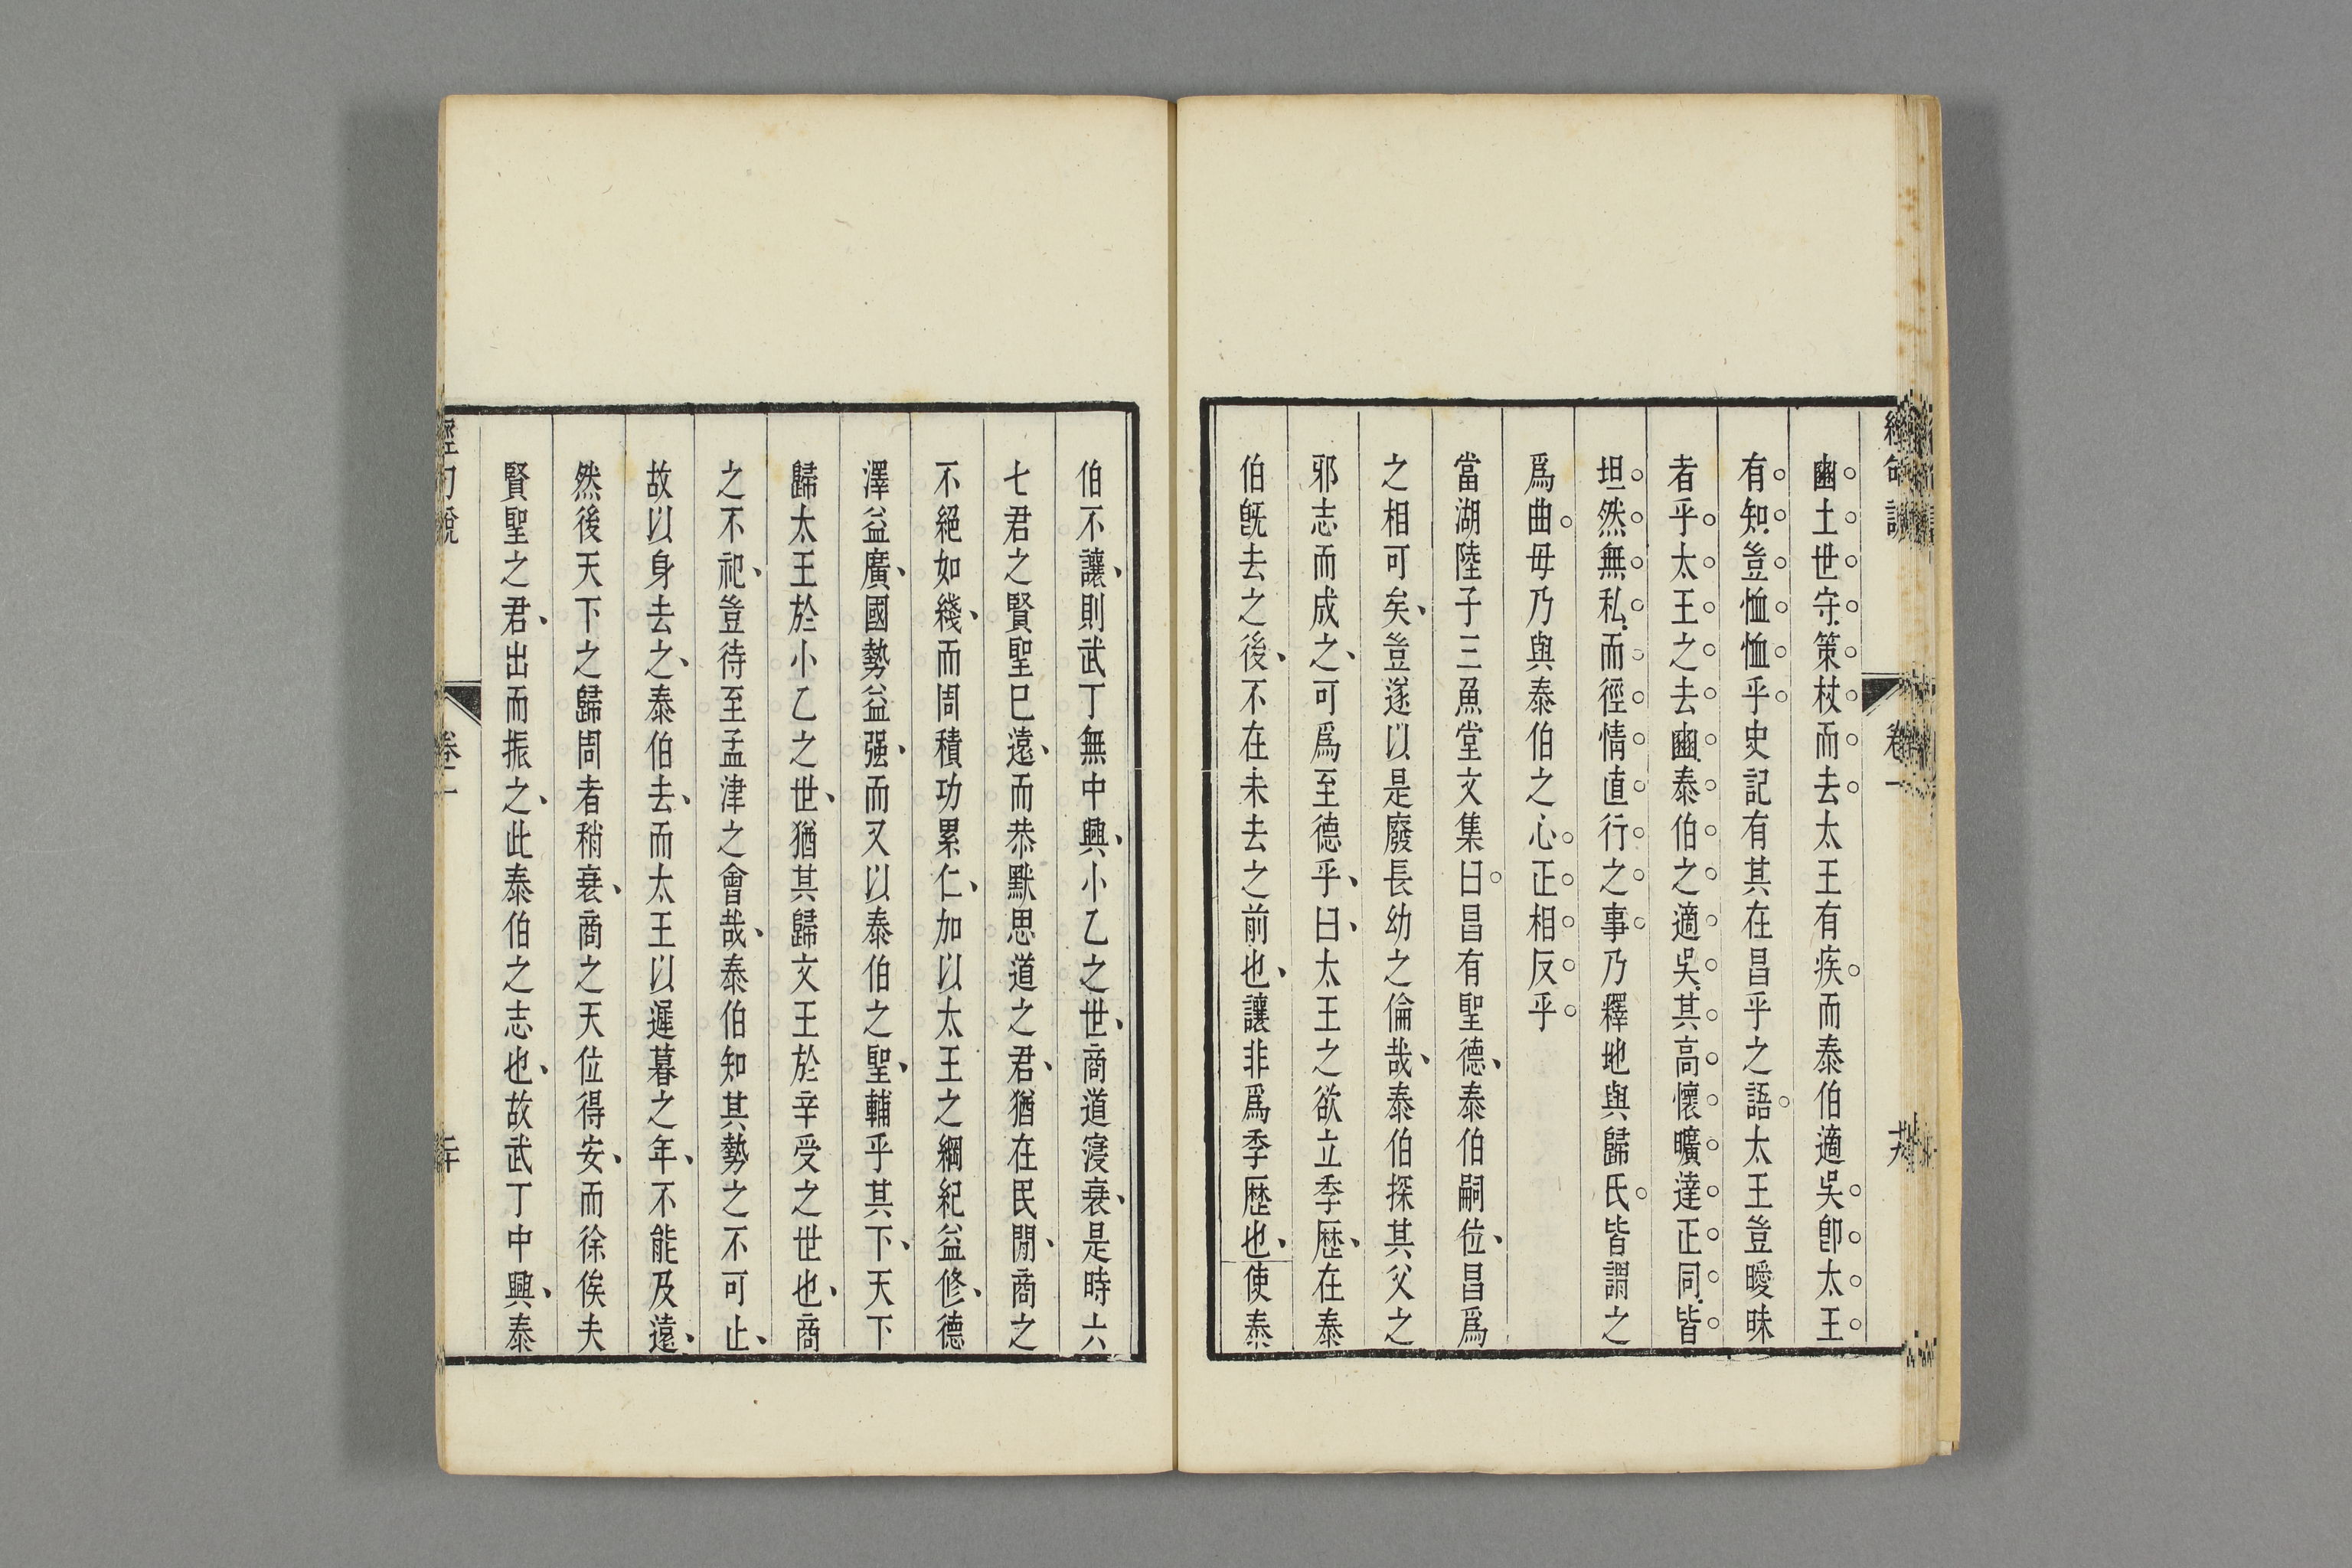 豳土世守策杖而去太王有疾而泰伯適吳卽太王
有知豈恤恤乎史記有其在昌乎之語太王豈曖昧
者乎太王之去豳泰伯之適吳其高懷曠達正同皆
坦然無私而徑情直行之事乃釋地與歸氏皆謂之
爲曲毋乃與泰伯之心正相反乎
當湖陸子三魚堂文集曰昌有聖德泰伯嗣位昌爲
之相可矣豈遂以是廢長幼之倫哉泰伯探其父之
邪志而成之可爲至德乎曰太王之欲立季歷在泰
伯旣去之後不在未去之前也讓非爲季歷也使泰
伯不讓則武丁無中興小乙之世商道寖衰是時六
七君之賢聖已遠而恭默思道之君猶在民閒商之
不絕如綫而周積功累仁加以太王之綱紀益修德
澤益廣國勢益强而又以泰伯之聖輔乎其下天下
歸太王於小乙之世猶其歸文王於辛受之世也商
之不祀豈待至孟津之會哉泰伯知其勢之不可止
故以身去之泰伯去而太王以遲暮之年不能及遠
然後天下之歸周者稍衰商之天位得安而徐俟夫
賢聖之君出而振之此泰伯之志也故武丁中興泰